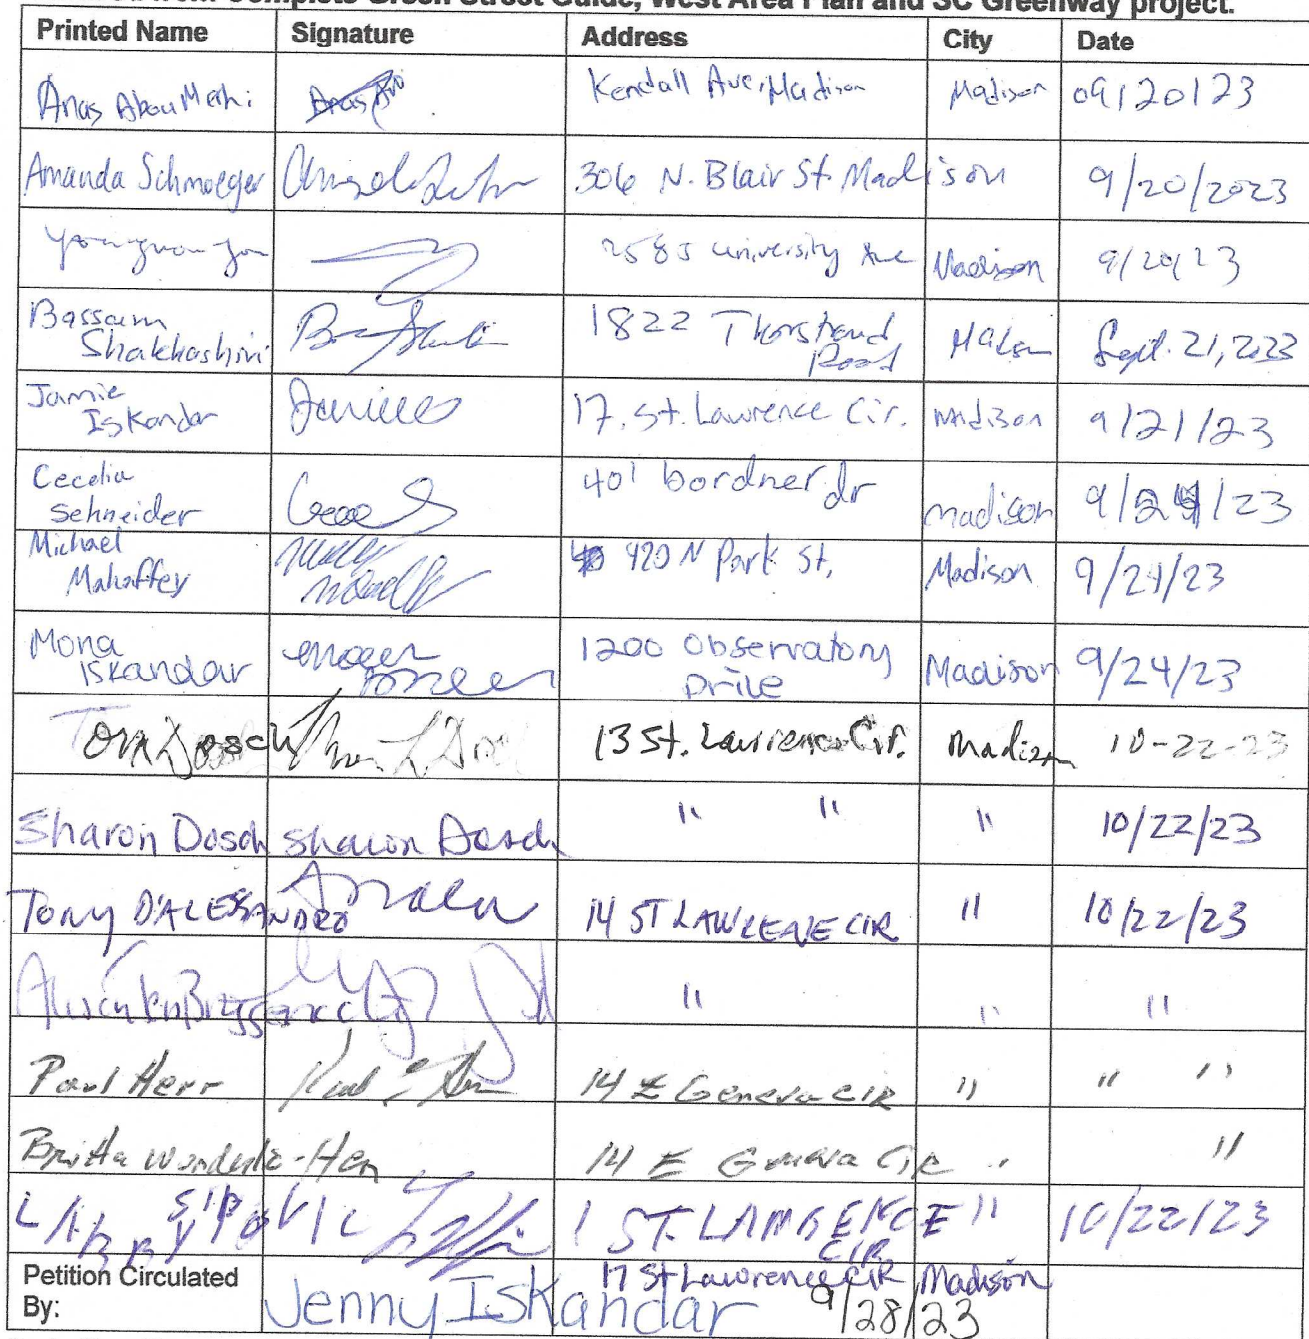 Complete Green Street Guide, West Area Plan and SC Greenway project.
Printed Name Signature Address City Date
Anas Abou Merhi Kendall Ave, Madison Madison 09/20/23
Amanda Schmoeger 306 N. Blair St. Madison 9/20/2023
University Ave Madison 9/20/23
Bassam Shakhashiri 1822 Thorstrand Road Madison Sept. 21, 2023
Jamie Iskandar 17. St. Lawrence Cir. Madison 9/21/23
Cecelia Schneider 401 bordner dr madison 9/24/23
Michael Mahaffey 420 N Park St, Madison 9/24/23
Mona Iskandar 1200 Observatory Drive Madison 9/24/23
Tom Dosch 13 St. Lawrence Cir. Madison 10-22-23
Sharon Dosch Sharon Dosch " " " 10/22/23
Tony D'ALESSANDRO 14 ST LAWRENE CIR " 10/22/23
" " "
Paul Herr 14 E Geneva CIR " " "
Britta Wunderle-Herr 14 E Geneva Cir " "
1 ST. LAWRENCE CIR " 10/22/23
Petition Circulated By: Jenny Iskandar 17 St Lawrence CIR Madison 9/28/23